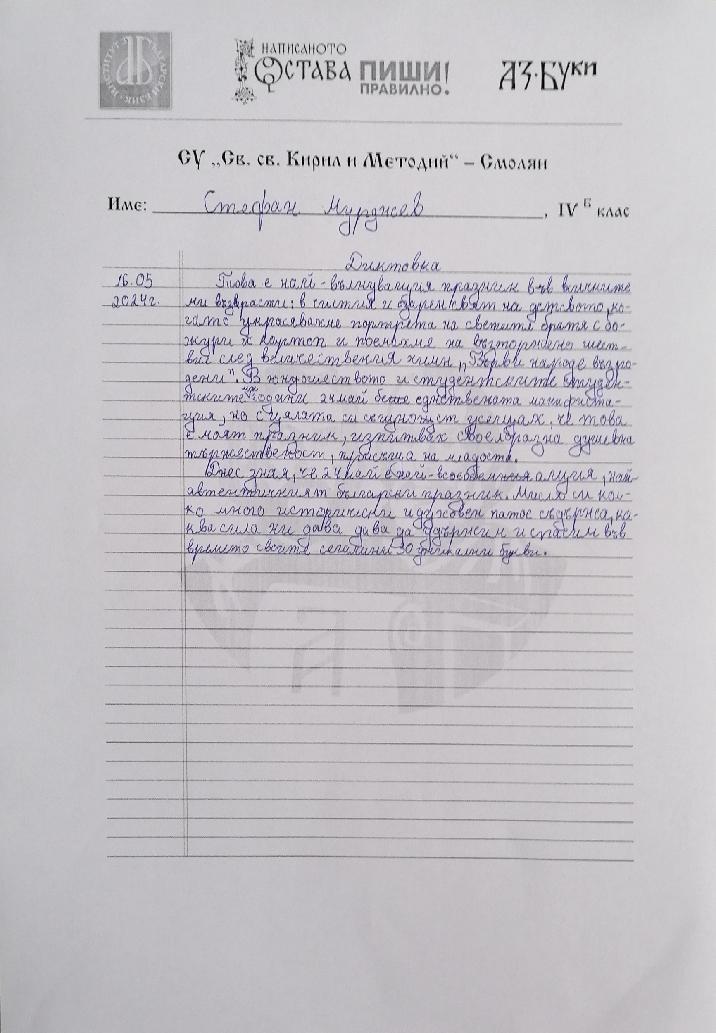 ИНСТИТУТ ЗА БЪЛГАРСКИ ЕЗИК
НАПИСАНОТО
ОСТАВА ПИШИ!
ПРАВИЛНО.
АЗ·БУКИ
СУ „Св. св. Кирил и Методий“ – Смолян
Име: Стефан Мурджев, IV Б клас
Диктовка
16.05 Това е най-вълнуващия празник във всичките
2024г. ми възрасти: в снтия и безрен свят на детството, ко-
гато украсявахме портрета на светите братя с бо-
жури и поемахме на възторжено шест-
вие след величествения химн „Върви народе възро-
дени". В юндошеството и студентските студен-
тските години 24 май беше единствената манифеста-
ция, на с цялата си същност усещах, че това
е моят празник, изпитвах своеобразна душевна
тържественост, на младостта.
Днес зная, че 24 май е най- , най-
автентичният български празник. Мисля си кол-
ко много исторически и духовен патос съдържа, ка-
ква сила ни дава дава да удържим и спасим във
времето своите 30 букви.